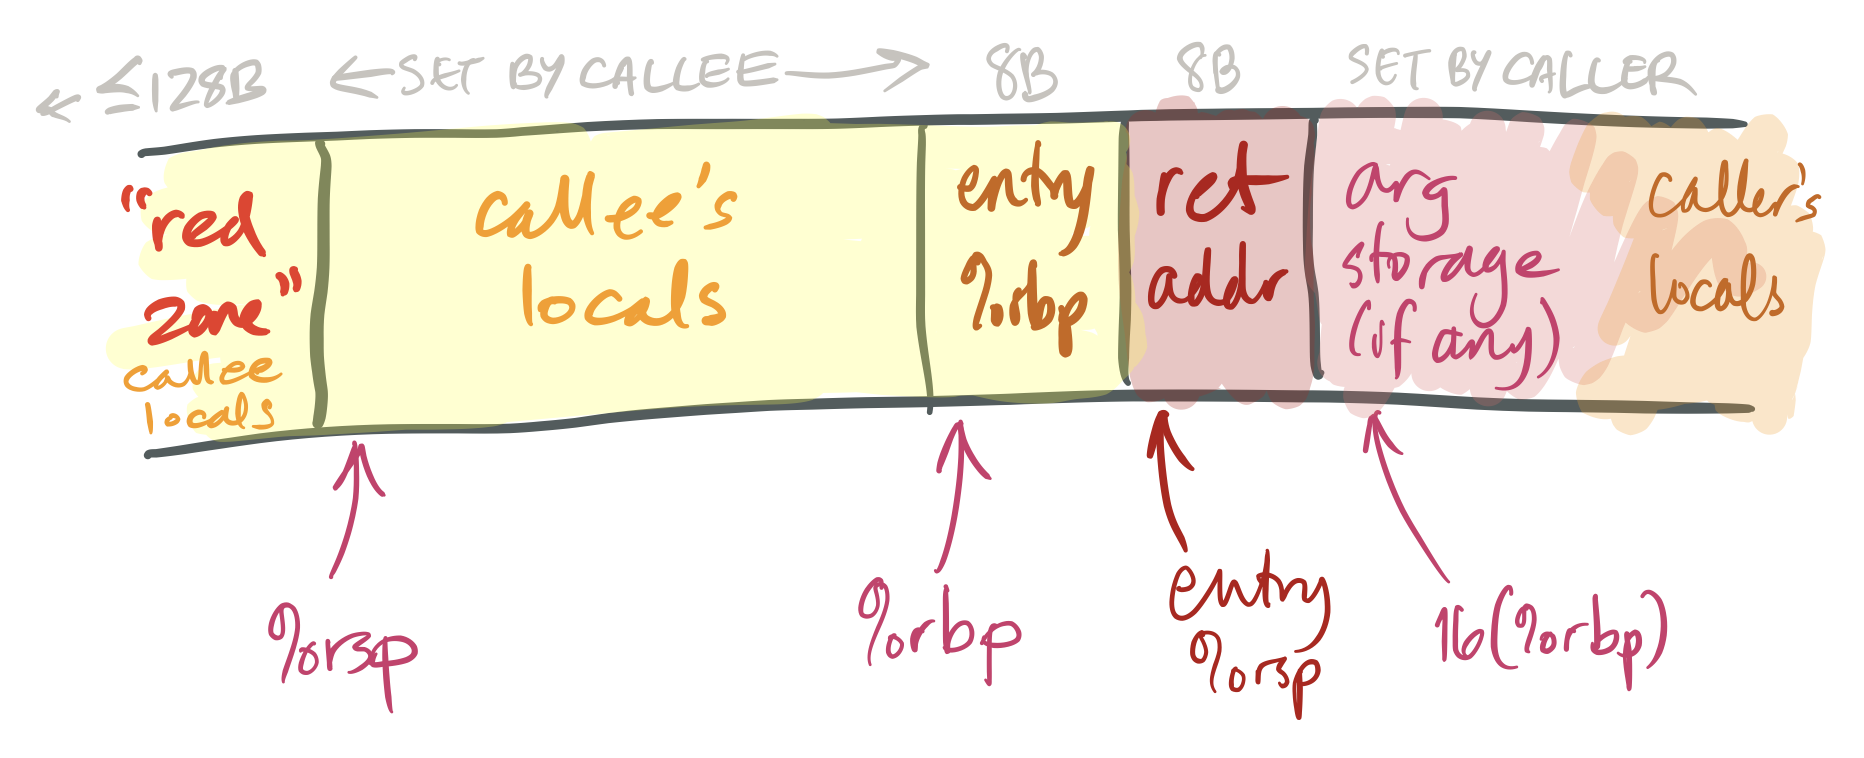 ≤128B
SET BY CALLEE
8B
8B
SET BY CALLER
"red
zone"
callee
locals
callee's
locals
entry
%rbp
ret
addr
arg
storage
(if any)
caller's
locals
%rsp
%rbp
entry
%rsp
16(%rbp)